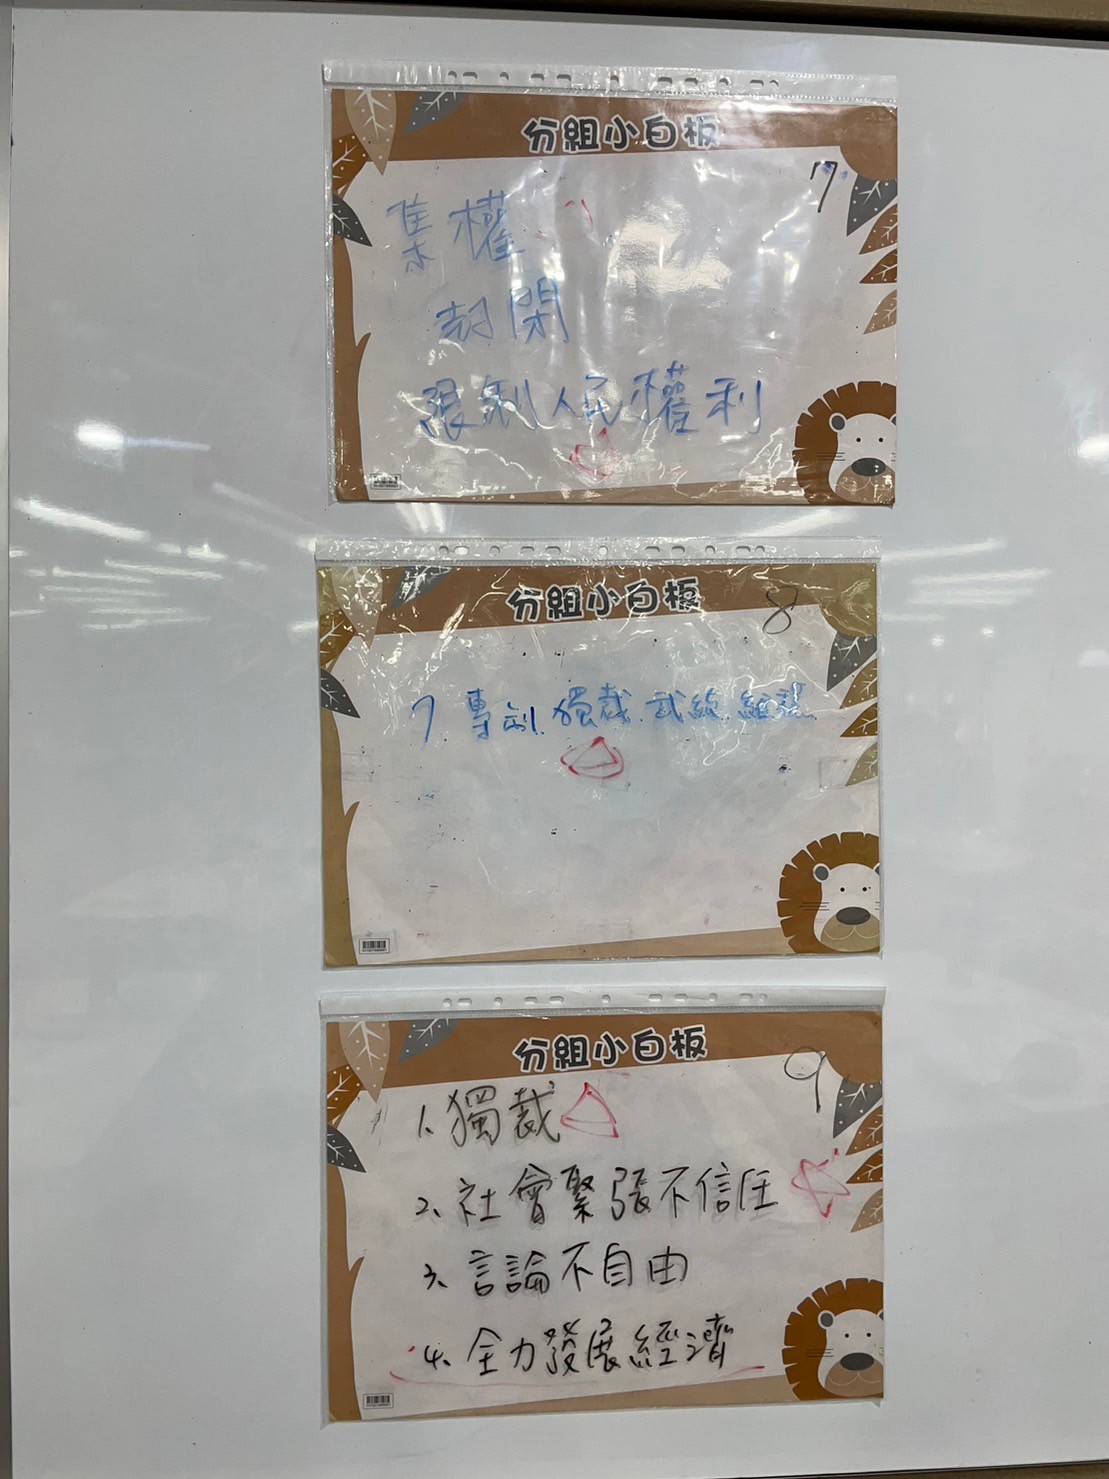 分組小白板
7
集權
封閉
限制人民權利
分組小白板
8
7 專制 獨裁 武統
分組小白板
9
1、獨裁
2、社會緊張不信任
3、言論不自由
4、全力發展經濟